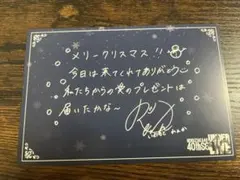 メリークリスマス!!
今日は来てくれてありがとう
私たちからの愛のプレゼントは
届いたかな〜